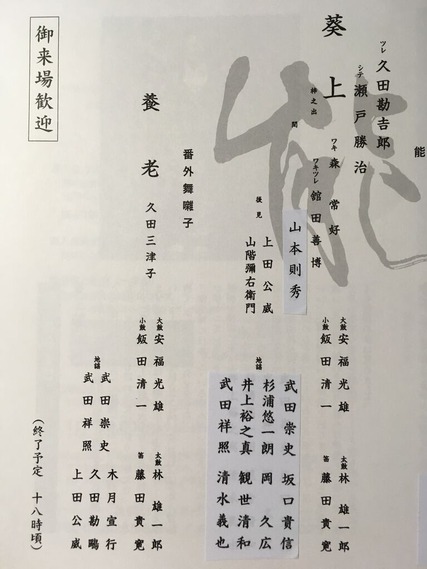 能
能
葵上
ツレ 久田勘吉郎
シテ 瀬戸勝治
梓之出
ワキ 森常好
ワキツレ 舘田善博
間 山本則秀
後見 上田公威
山階彌右衛門
大鼓 安福光雄
小鼓 飯田清一
太鼓 林雄一郎
笛 藤田貴寛
地謡
武田崇史 坂口貴信
杉浦悠一朗 岡久広
井上裕之真 観世清和
武田祥照 清水義也
番外舞囃子
養老
久田三津子
大鼓 安福光雄
小鼓 飯田清一
太鼓 林雄一郎
笛 藤田貴寛
地謡
武田崇史
武田祥照
木月宣行
久田勘鷗
上田公威
(終了予定 十八時頃)
御来場歓迎